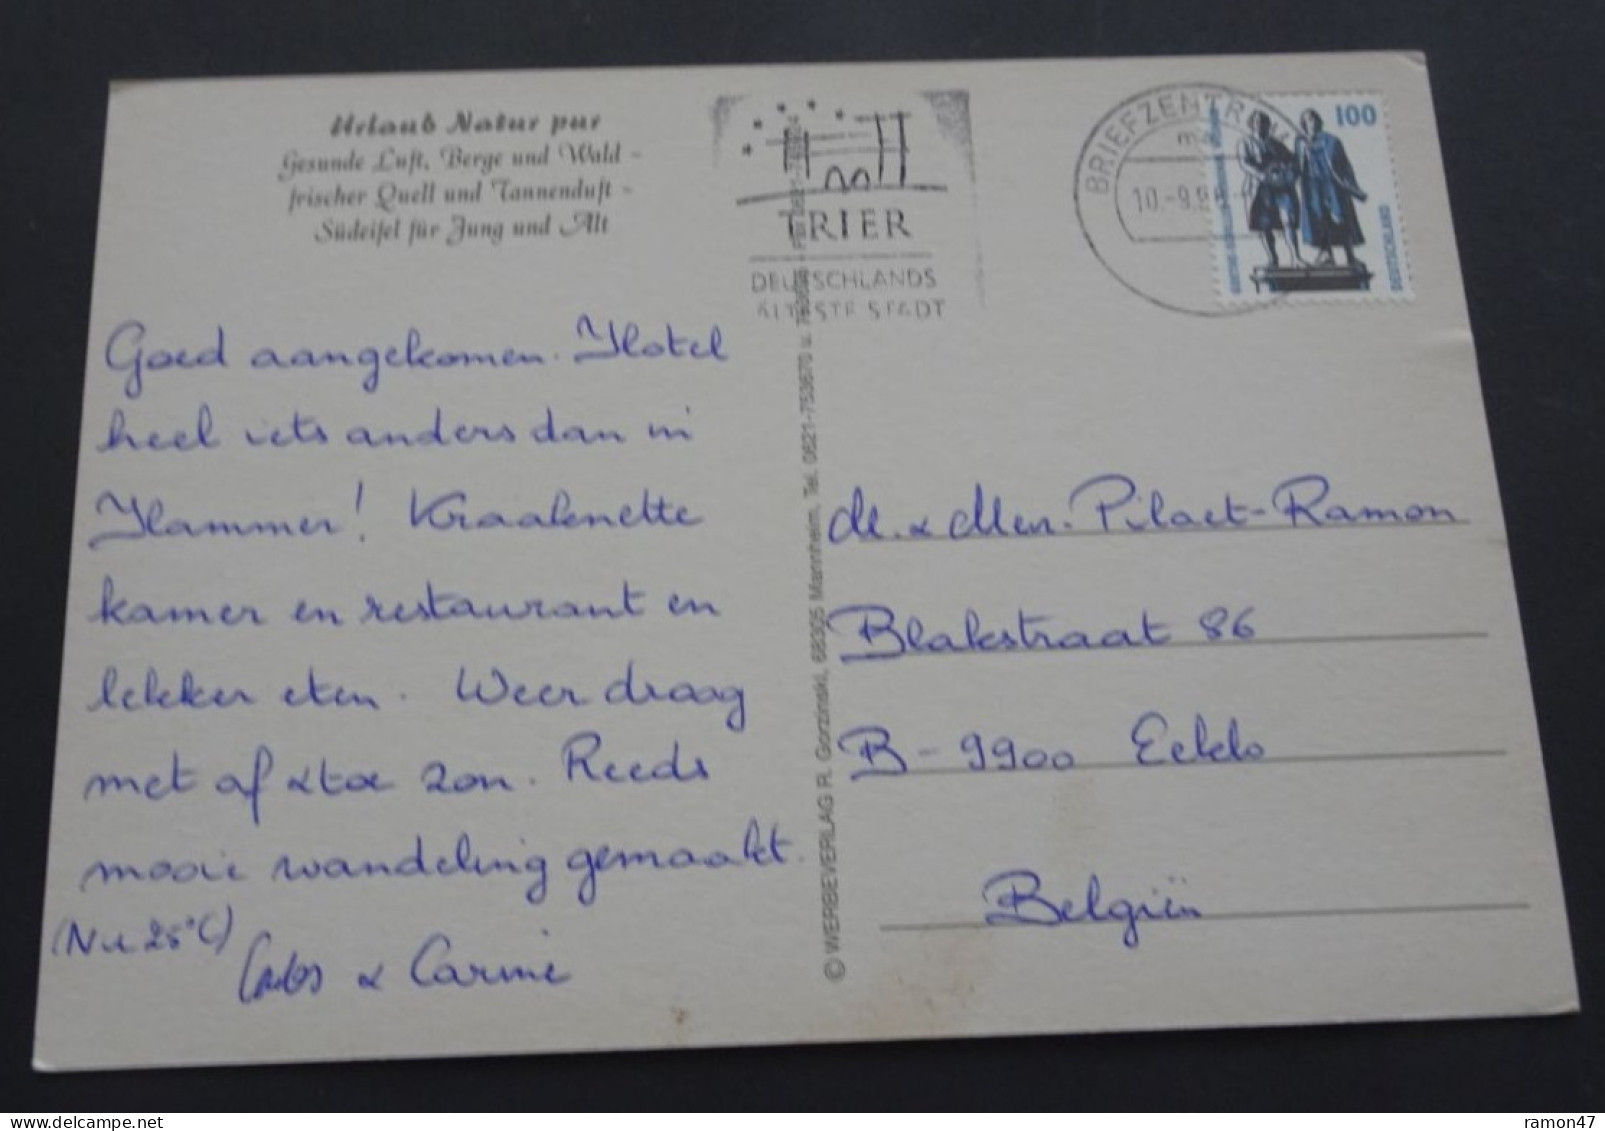 Urlaub Natur pur
Gesunde Luft, Berge und Wald -
frischer Quell und Tannenduft -
Südeifel für Jung und Alt
TRIER
DEUTSCHLANDS
ÄLTESTE STADT
BRIEFZENTRUM
10.-9.9
100
DEUTSCHLAND
Goed aangekomen. Hotel
heel iets anders dan in
Hammer! Kraaknette
kamer en restaurant en
lekker eten. Weer draag
met af & toe zon. Reeds
mooie wandeling gemaakt.
(Nu 25°C)
& Carine
© WERBEVERLAG R. Gorzinski, 68305 Mannheim, Tel. 0621-753670 u.
M. & Mevr. Pilaet-Ramon
Blakstraat 86
B-9900 Eeklo
Belgiën
ramon47